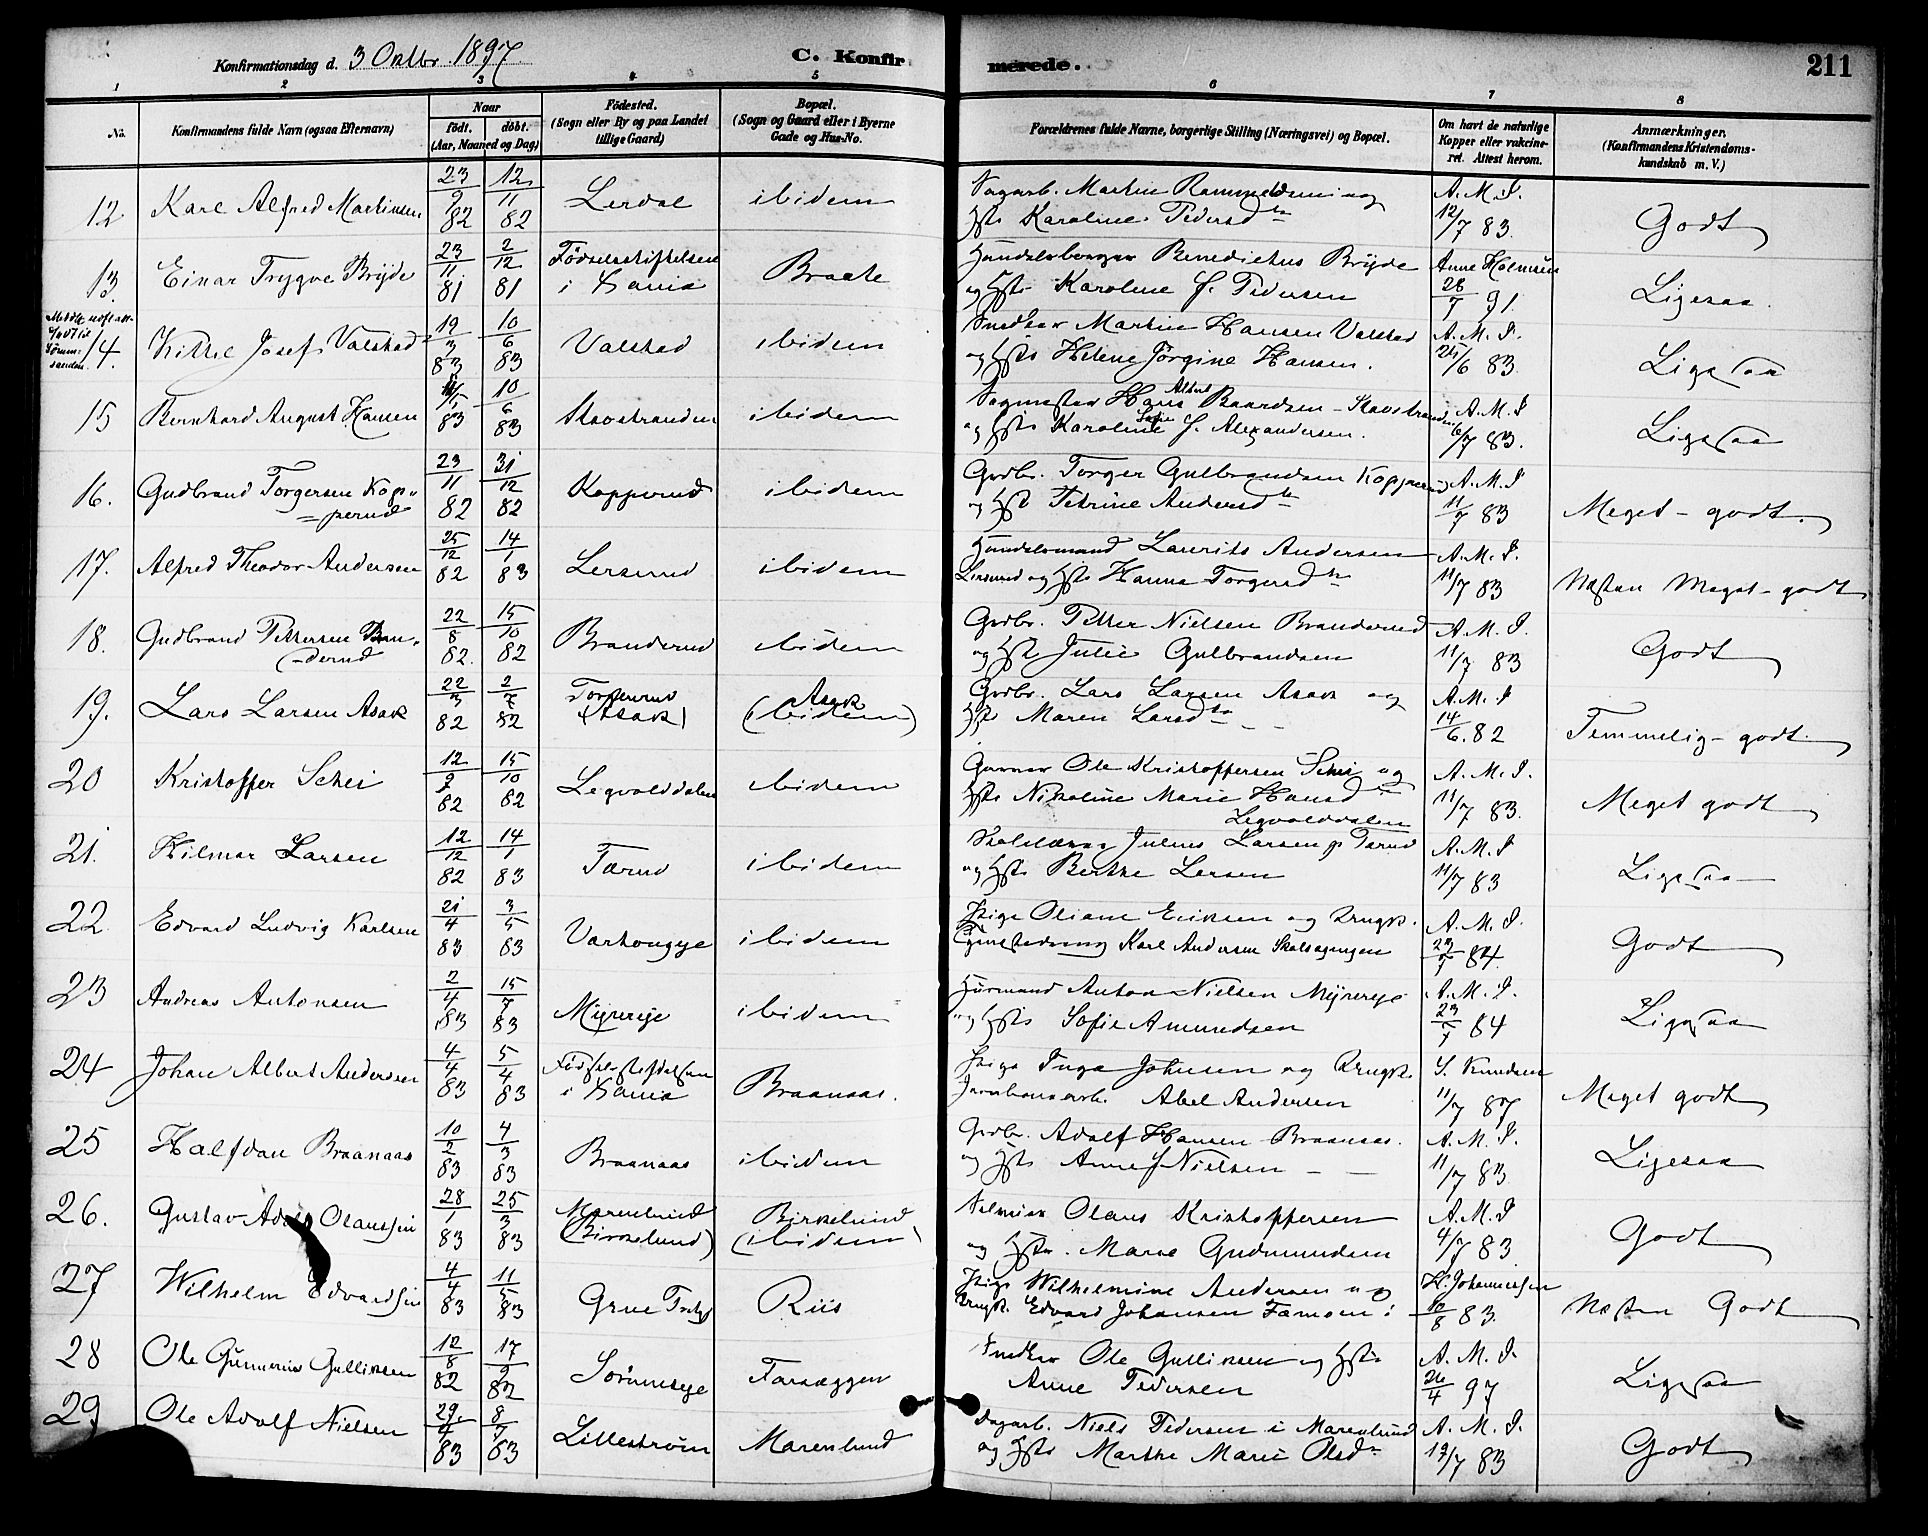 Konfirmationsdag d. 3 Octbr. 1897. C. Konfirmerede. 211
1 2 3 4 5 6 7 8
No. Konfirmandens fulde Navn (ogsaa Efternavn) Naar født. døbt. (Aar, Maaned og Dag) Fødested. (Sogn eller By og paa Landet tillige Gaard) Bopæl. (Sogn og Gaard eller i Byerne Gade og Hus-No. Forældrenes fulde Navne, borgerlige Stilling (Næringsvei) og Bopæl. Om havt de naturlige Kopper eller vakcineret. Attest herom. Anmærkninger. (Konfirmandens Kristendomskundskab m. V.)
12. Karl Alfred Martinsen 23/9 82 12/11 82 Lerdal ibidem Sagarb. Martin og
Hst. Karoline Pedersd. A. M. S. 12/7 83. Godt
13. Einar Trygve Brÿde 23/11 81 2/12 81 Fødselsstiftelsen i Xania Braate Handelsborger Benedictus Brÿde
og Hst. Karoline f. Pedersen Anne Holmsen 28/7 91. Ligesaa.
14. Kittil Josef Valstad 19/3 83 10/6 83 Valstad ibidem Snedker Martin Hansen Valstad
og Hst. Helene Jörgine Hansen. A. M. S. 25/6 83. Ligesaa
15 Bernhard August Hansen 83 10/6 83 Skovstranden ibidem Sagmester Hans Albert Baardsen - Skovstranden
og Hst. Karoline Sofie f. Alexandersen. A. M. S 6/7 83. Ligesaa
16. Gudbrand Torgersen Kopperud 23/11 82 31/12 82 Kopperud ibidem Grdbr. Torger Gulbrandsen Kopperud
og Hst. Petrine Andersd. A. M. S 11/7 83 Meget-godt.
17. Alfred Theodor Andersen 25/12 82 14/1 83 Lersund ibidem Handelsmand Laurits Andersen
Lersund og Hst. Hanna Torgersd. A. M. S. 11/7 83 Næsten Meget-godt
18. Gudbrand Pettersen Branderud 22/8 82. 15/10 82 Branderud ibidem Grdbr. Petter Nielsen Branderud
og Hst. Julie Gulbrandsen A. M. S. 11/7 83 Godt
19. Lars Larsen Asak 22/3 82 2/7 82 Torgerrud (Asak) Asak (ibidem) Grdbr. Lars Larsen Asak og
Hst. Maren Larsd. A. M. S 14/6. 82 Temmelig-godt.
20 Kristoffer Schei 12/9 82 15/10 82 Leqvolddalen ibidem Garver Ole Kristoffersen Schei og
Hst. Nikoline Marie Hansd. Leqvolddalen A. M. S. 11/7 83. Meget godt
21. Hilmar Larsen 12/12 82 14/1 83 Tærud ibidem Skolelærer Julius Larsen p. Tærud
og Hst. Berthe Larsen A. M. S 11/7 83 Ligesaa
22 Edvard Ludvig Karlsen 21/4 83 3/5 83 Varhougeje ibidem Pige Oliane Eriksen og Ungk.
Karl Andersen A. M. S. 84. Godt
23 Andreas Antonsen 2/4 83 15/7 83 Myrereje ibidem Husmand Anton Nielsen Myrereje
og Hst. Sofie Amundsen A. M. S. 84 Ligesaa
24 Johan Albert Andersen 4/4 83 5/4 83 Fødselsstiftelsen i Xania Braanaas. Pige Inga Johnsen og Ungk.
Jernbanearb. Abel Andersen S. Knudsen 11/7 87 Meget godt
25 Halfdan Braanaas 10/2 83 4/3 83 Braanaas ibidem Grdbr. Adolf Hansen Braanaas.
og Hst. Anne f. Nielsen A. M. S. 11/7 83. Ligesaa
26. Gustav Adolf Olaussen 28/1 83 25/3 83 Marenlund (Birkelund) Birkelund (ibidem) Olaus Kristoffersen
og Hst. Maren Gudmundsen A. M. S 4/7 83. Godt
27 Wilhelm Edvardsen 4/4 83 11/5 83 Grue Riis Pige Wilhelmine Andersen og
Ungk. Edvard Johansen H. Johannessen 10/8 83. Næsten Godt
28 Ole Gunnerius Gulliksen 12/8 82 17/9 82 Sörumeje Farseggen Snedker Ole Gulliksen og Hst.
Anne Pedersen A. M. S. 26/4 97 Ligesaa
29 Ole Adolf Nielsen 29/4 83 8/7 83 Lilleström Marenlund Dagarb. Niels Pedersen i Marenlund
og Hst. Marthe Marie Olsd. A. M. S. 12/7 83 Godt